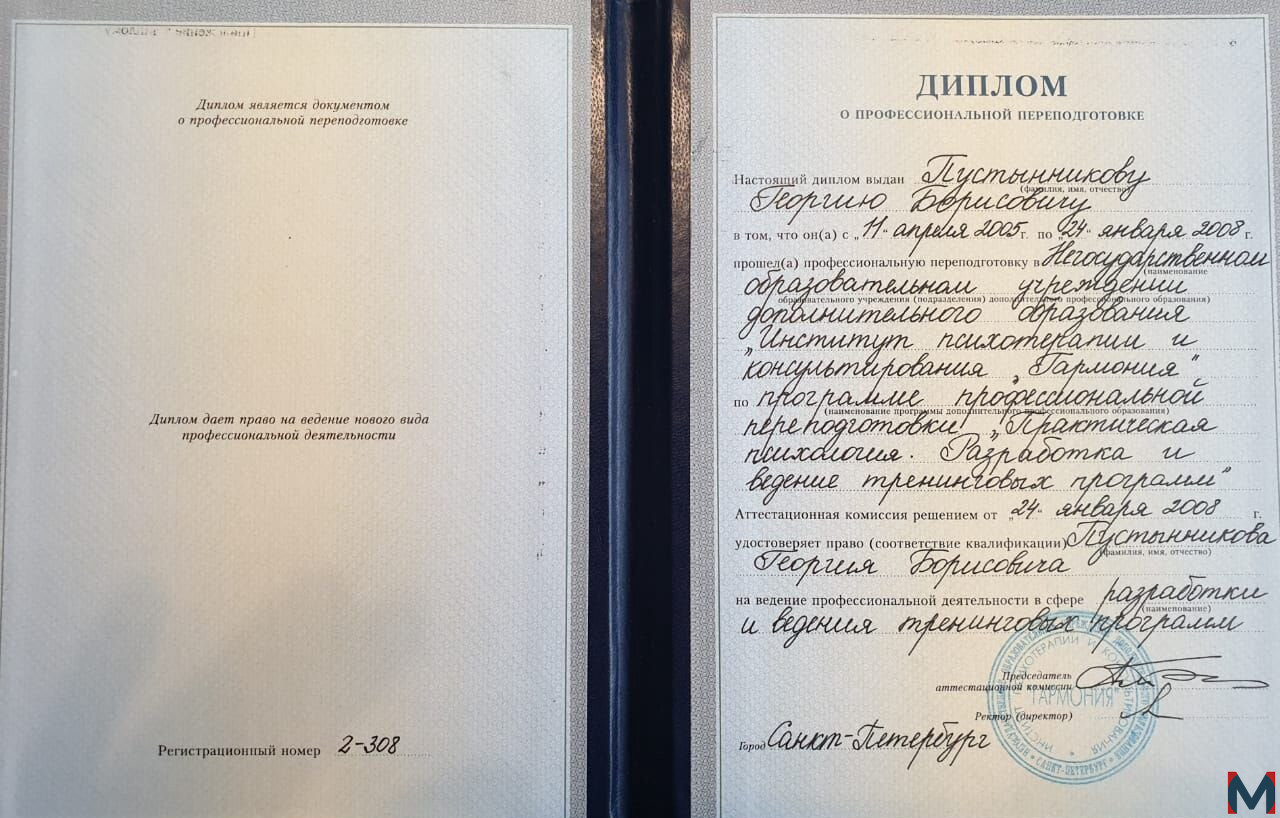 Диплом является документом
о профессиональной переподготовке
Диплом дает право на ведение нового вида
профессиональной деятельности
Регистрационный номер 2-308
ДИПЛОМ
О ПРОФЕССИОНАЛЬНОЙ ПЕРЕПОДГОТОВКЕ
Настоящий диплом выдан Пустынникову
(фамилия, имя, отчество)
Георгию Борисовичу
в том, что он(а) с „11“ апреля 2005 г. по „24“ января 2008 г.
прошел(а) профессиональную переподготовку в Негосударственном
(наименование
образовательном учреждении
образовательного учреждения (подразделения) дополнительного профессионального образования)
дополнительного образования
„Институт психотерапии и
консультирования „Гармония“
по программе профессиональной
(наименование программы дополнительного профессионального образования)
переподготовки „Практическая
психология. Разработка и
ведение тренинговых программ“
Аттестационная комиссия решением от „24“ января 2008 г.
удостоверяет право (соответствие квалификации) Пустынникова
(фамилия, имя, отчество)
Георгия Борисовича
на ведение профессиональной деятельности в сфере разработки
(наименование)
и ведения тренинговых программ
Председатель
аттестационной комиссии
Ректор (директор)
Город Санкт-Петербург
"ГАРМОНИЯ"
ИНСТИТУТ ПСИХОТЕРАПИИ И КОНСУЛЬТИРОВАНИЯ
САНКТ-ПЕТЕРБУРГ
M